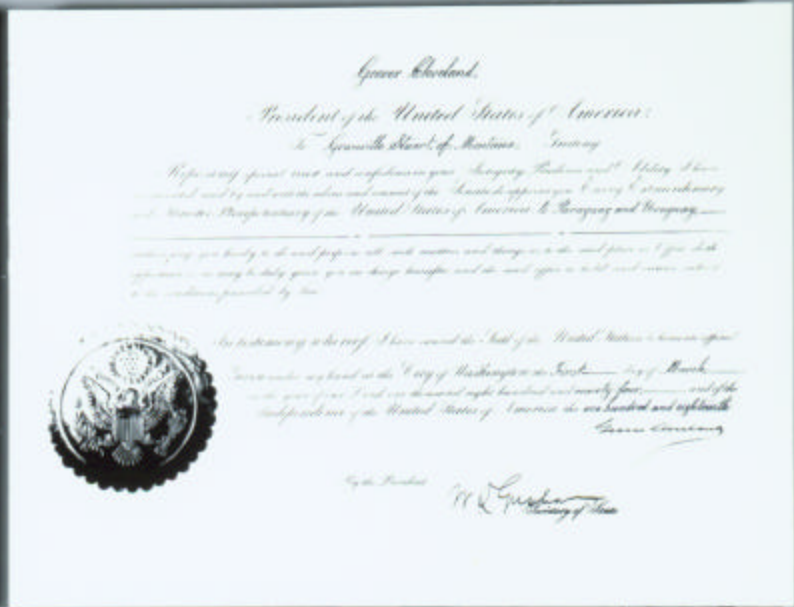 Grover Cleveland,
President of the United States of America:
To Granville Stuart, of Montana, Greeting
Reposing special trust and confidence in your Integrity, Prudence and Ability I have
and by and with the advice and consent of the Senate do appoint you Envoy Extraordinary
and Minister Plenipotentiary of the United States of America to Paraguay and Uruguay
you hereby to do and perform all such matters and things as to the said place or office doth
the said office to hold and
by law.
In testimony whereof, I have caused the Seal of the United States to be hereunto affixed
Given under my hand at the City of Washington the First day of March
in the year of our Lord one thousand eight hundred and ninety four, and of the
Independence of the United States of America the one hundred and eighteenth
Grover Cleveland
By the President
W Q Gresham
Secretary of State